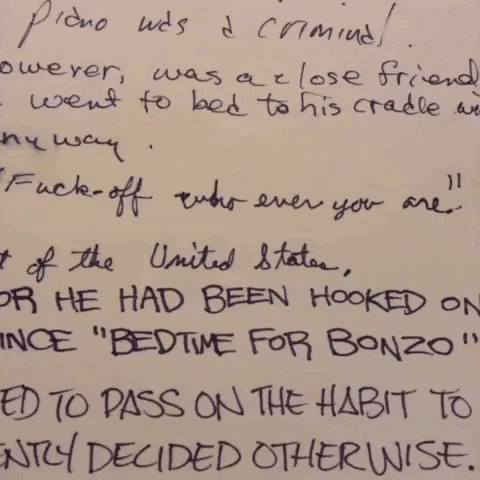 piano was a criminal.
owever, was a close friend
went to bed to his cradle
ny way.
"Fuck-off who ever you are."
of the United States,
OR HE HAD BEEN HOOKED ON
INCE "BEDTIME FOR BONZO"
ED TO PASS ON THE HABIT TO
ENTLY DECIDED OTHERWISE.